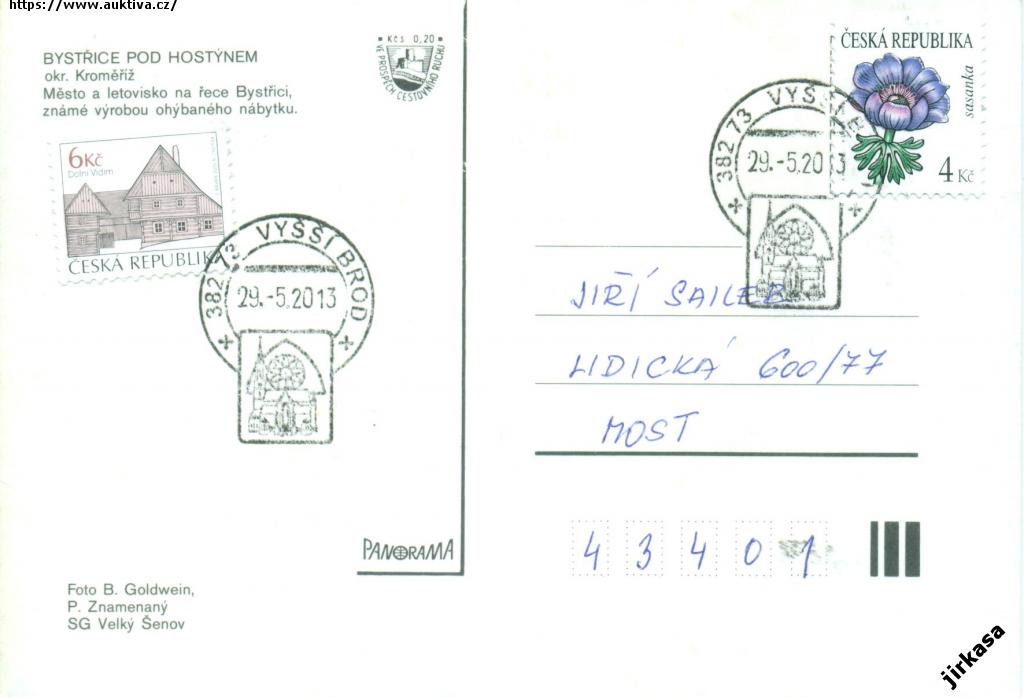 https://www.auktiva.cz/
BYSTŘICE POD HOSTÝNEM
okr. Kroměříž
Město a letovisko na řece Bystřici,
známé výrobou ohýbaného nábytku.
Kčs 0,20
VE PROSPĚCH CESTOVNÍHO RUCHU
6Kč
Dolní Vidim
ČESKÁ REPUBLIKA
382 73 VYŠŠÍ BROD
29.-5.2013
PANORAMA
Foto B. Goldwein,
P. Znamenaný
SG Velký Šenov
ČESKÁ REPUBLIKA
sasanka
4 Kč
382 73 VYŠŠÍ
29.-5.2013
JIŘÍ SAILER
LIDICKÁ 600/77
MOST
43401
jirkasa